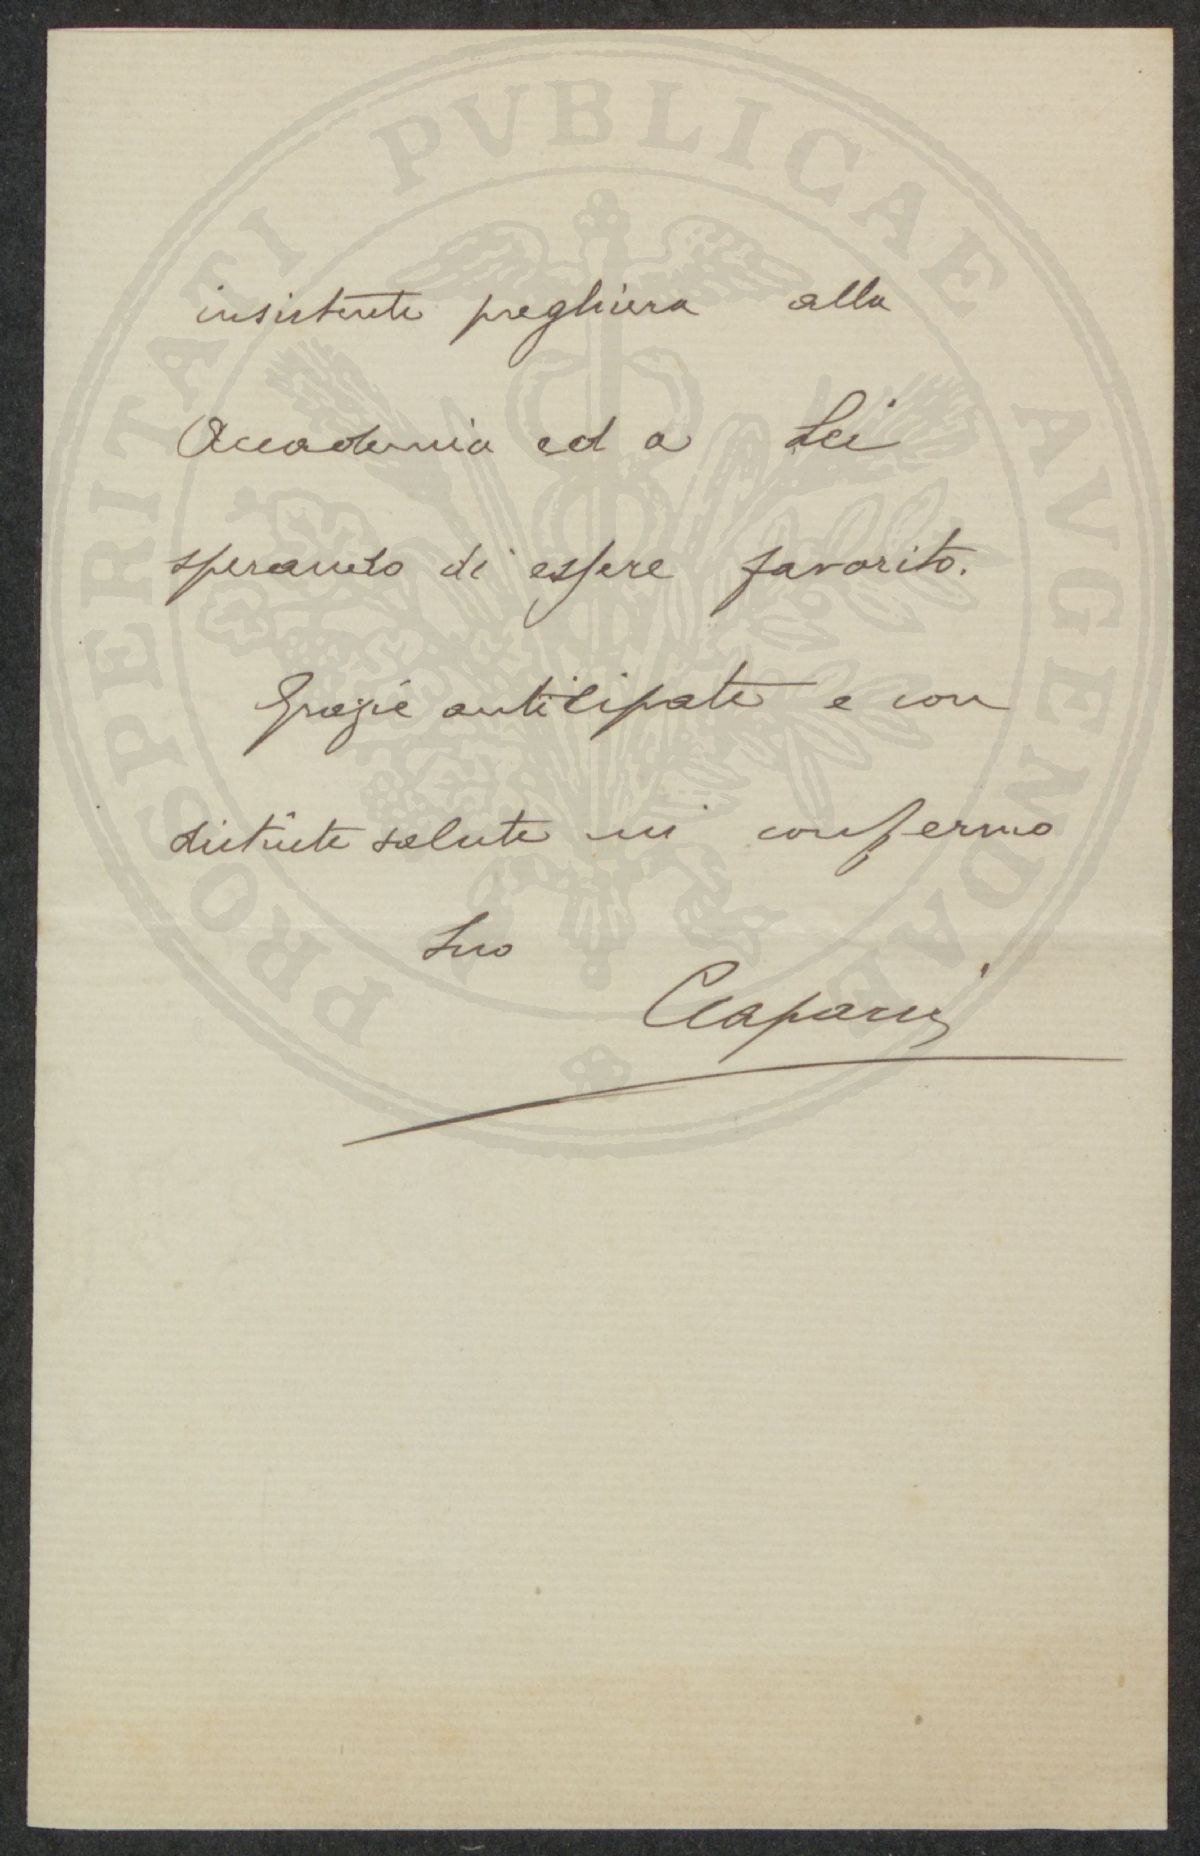 insistente preghiera alla
Accademia ed a Lei
sperando di essere favorito.
Grazie anticipate e con
distinte salute mi confermo
Suo
PROSPERITATI PVBLICAE AVGENDAE